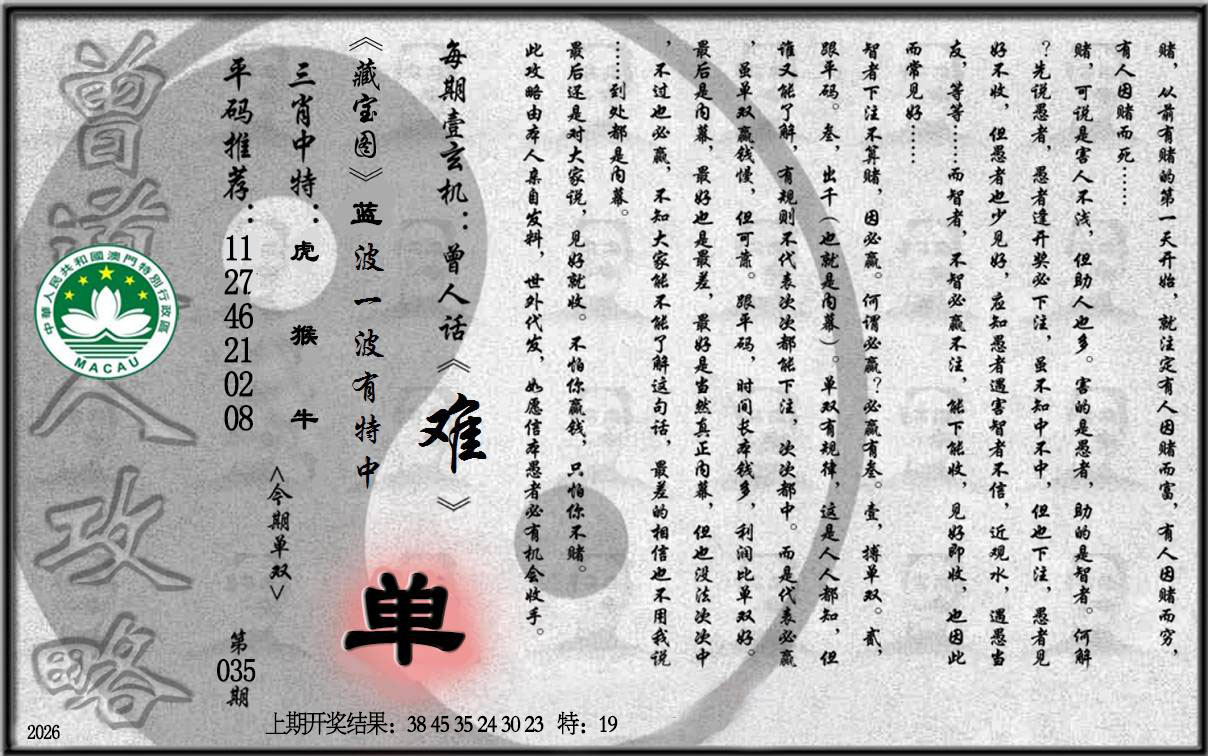 赌，从前有赌的第一天开始，就注定有人因赌而富，有人因赌而穷，
有人因赌而死……
赌，可说是害人不浅，但助人也多。害的是愚者，助的是智者。何解
？先说愚者，愚者逢开奖必下注，虽不知中不中，但也下注，愚者见
好不收，但愚者也少见好，应知愚者遇害智者不信，近观水，遇愚当
友，等等……而智者，不智必赢不注，能下能收，见好即收，也因此
而常见好……
智者下注不算赌，因必赢。何谓必赢？必赢有叁。壹，搏单双。贰，
跟平码。叁，出千（也就是内幕）。单双有规律，这是人人都知，但
谁又能了解，有规则不代表次次都能下注，次次都中。而是代表必赢
，虽单双赢钱慢，但可靠。跟平码，时间长本钱多，利润比单双好。
最后是内幕，最好也是最差，最好是当然真正内幕，但也没法次次中
，不过也必赢，不知大家能不能了解这句话，最差的相信也不用我说
……到处都是内幕。
最后还是对大家说，见好就收。不怕你赢钱，只怕你不赌。
此攻略由本人亲自发料，世外代发，如愿信本愚者必有机会收手。
每期壹玄机：曾人话《难》
《藏宝图》蓝波一波有特中
单
三肖中特：虎 猴 牛
<今期单双>
平码推荐：11 27 46 21 02 08
第035期
曾道人攻略
中華人民共和國澳門特別行政區
MACAU
上期开奖结果：38 45 35 24 30 23 特：19
2026